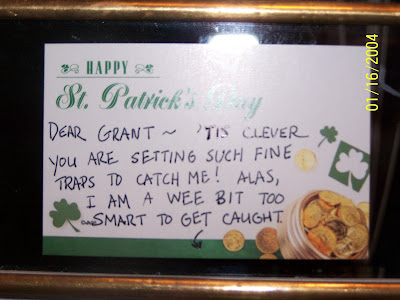 HAPPY
St. Patrick's Day
DEAR GRANT ~ 'TIS CLEVER
YOU ARE SETTING SUCH FINE
TRAPS TO CATCH ME! ALAS,
I AM A WEE BIT TOO
SMART TO GET CAUGHT.
01/16/2004